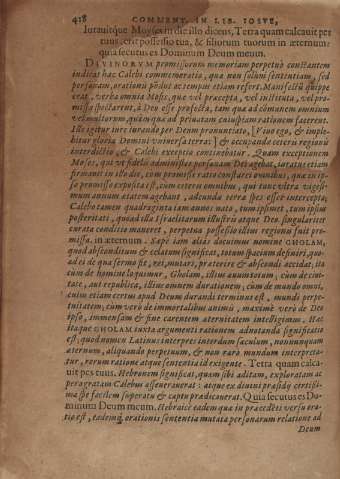 418 COMMENT. IN LIB. IOSVE,
Iurauitque Moyses in die illo dicens, Terra quam calcauit per
tuus, erit possessio tua, & filiorum tuorum in æternum:
quia secutus es Dominum Deum meum.
DIVINORVM promissorum memoriam perpetuò constantem
indicat hæc Calebi commemoratio, qua non solùm sententiam, sed
personam, orationis pondus ac tempus etiam refert. Manifestũ quippe
erat, verba omnia Mosis, quæ vel præcepta, vel instituta, vel pro-
missa spectarent, à Deo esse profecta, tam quæ ad cõmunem omnium
vel multorum, quàm quæ ad priuatam cuiuspiam rationem facerent.
Ille igitur iure iurando per Deum pronuntiato, Viuo ego, & imple-
bitur gloria Domini vniuersa terra: & occupandæ ceteris regionis
interdictio, & Calebo exceptio contingebat. Quam exceptionem
Moses, qui vt fidelis administer personam Dei agebat, iuratus etiam
firmauit in illo die, cum promissi ratio
sa promissio exposita est, cùm ceteris omnibus, qui tunc vltra vigesi-
mum annum ætatem agebant, adeundæ terræ spes esset intercepta;
Calebo tamen quadraginta iam annos nato, tum ipsimet, tum ipsius
posteritati, quod illa Israëlitarum illustris atque Deo singulariter
curata conditio maneret, perpetua possessio illius regionis fuit pro-
missa. in æternum. Sæpe iam aliàs docuimus nomine GHOLAM,
quod absconditum & celatum significat, totum spacium definiri, quo-
ad ei de qua sermo fit, vel mutari, præterire & abscondi accidat, ita
cùm de homine loquimur, Gholam, illius æuum totum; cùm de ciui-
tate, aut republica, illius omnem durationem; cùm de mundo omni,
cuius etiam certus apud Deum durandi terminus est, mundi perpe-
tuitatem; cum verò de immortalibus animis, maximè verò de Deo
ipso, immensam & fine carentem æternitatem intelligimus. Hac
itaque GHOLAM iuxta argumenti rationem adnotanda significatio
est; quod nomen Latinus interpres interdum sæculum, nonnunquam
æternum, aliquando perpetuum, & non rarò mundum interpreta-
tur, rerum ratione atque sententia id exigente. Terra quam calca-
uit pes tuus. Hebronem significat, quam sibi aditam, exploratam ac
peragratam Calebus asseuerauerat: atque ex diuini præsidij certissi-
ma spe facilem superatu & captu prædicauerat. Quia secutus es Do-
minum Deum meum. Hebraicè eadem quæ in præcedẽti versu ora-
tio est, eademq́; orationis sententia mutata personarum relatione ad
Deum